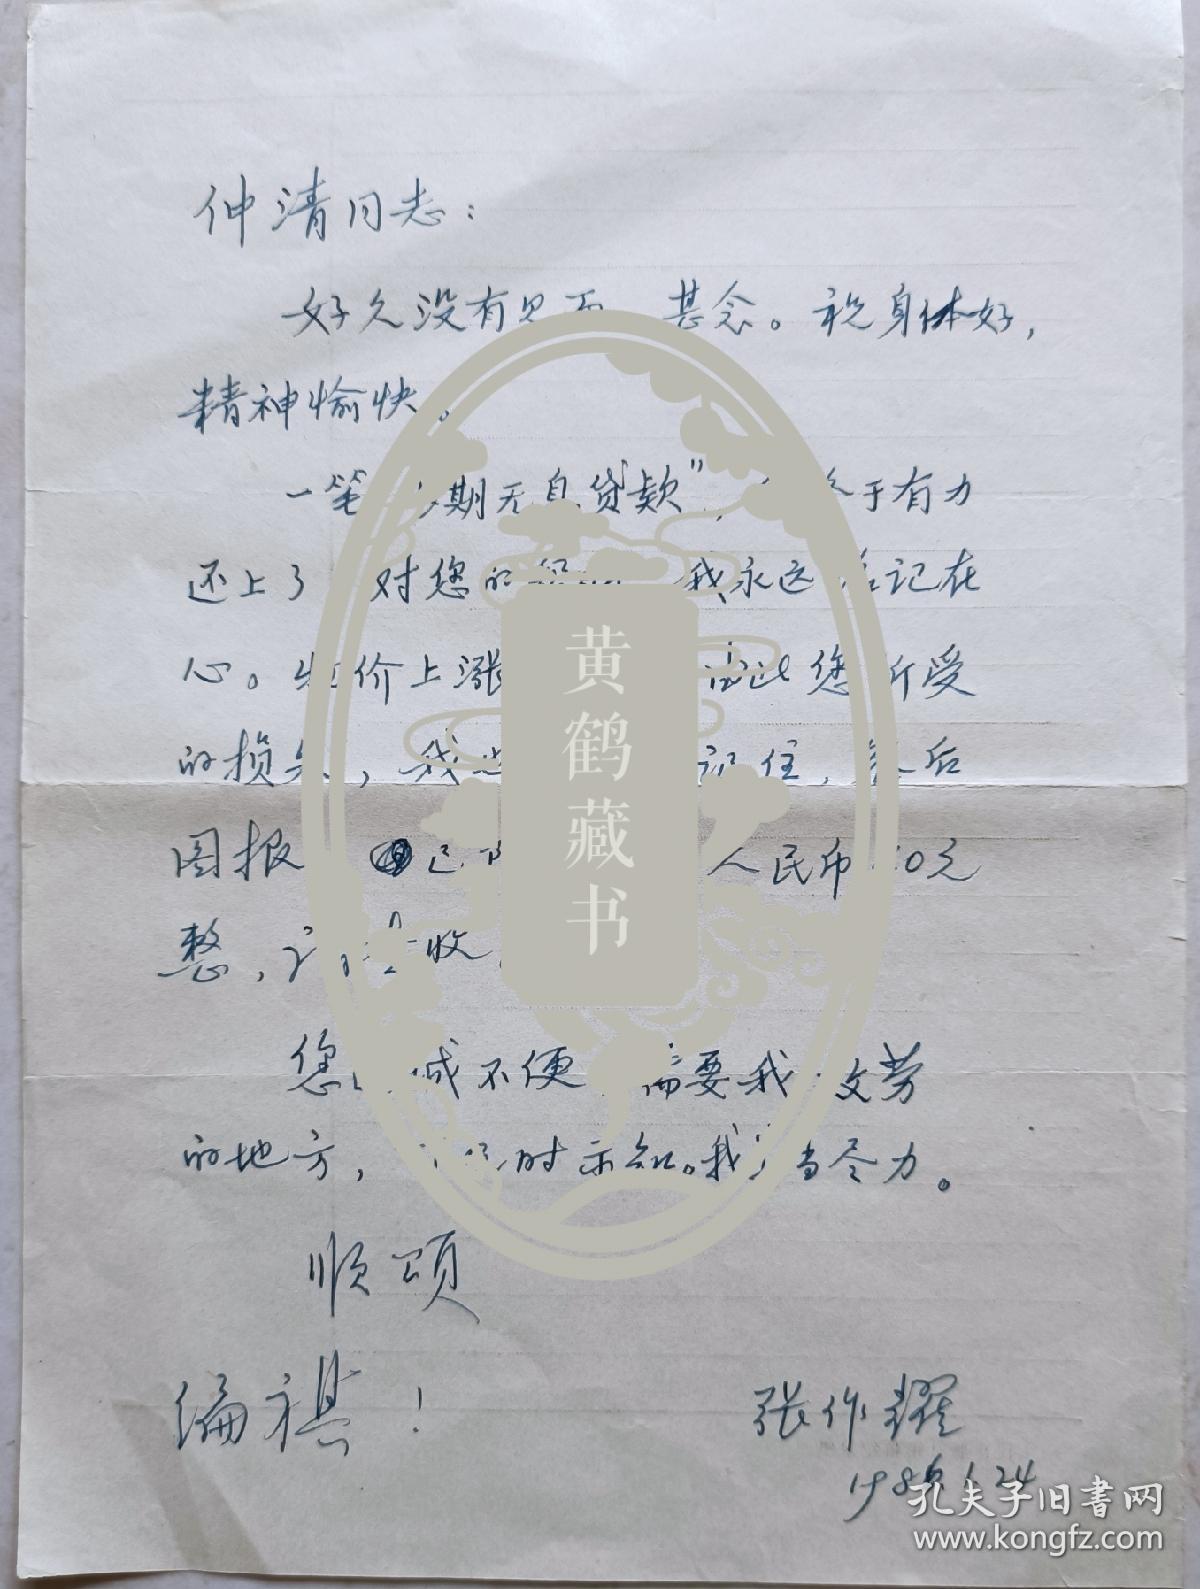 仲清同志：
好久没有见面 甚念。祝身体好，
精神愉快。
一笔 期无息贷款”， 终于有力
还上了 对您的 我永远 记在
心。物价上涨 由此您所受
的损失，我也 记住， 后
图报 已 人民币 0元
整，请查收
您 进城不便 需要我效劳
的地方， 随时示知。我当尽力。
顺颂
编祺！
张作耀
黄鹤藏书
孔夫子旧书网
www.kongfz.com